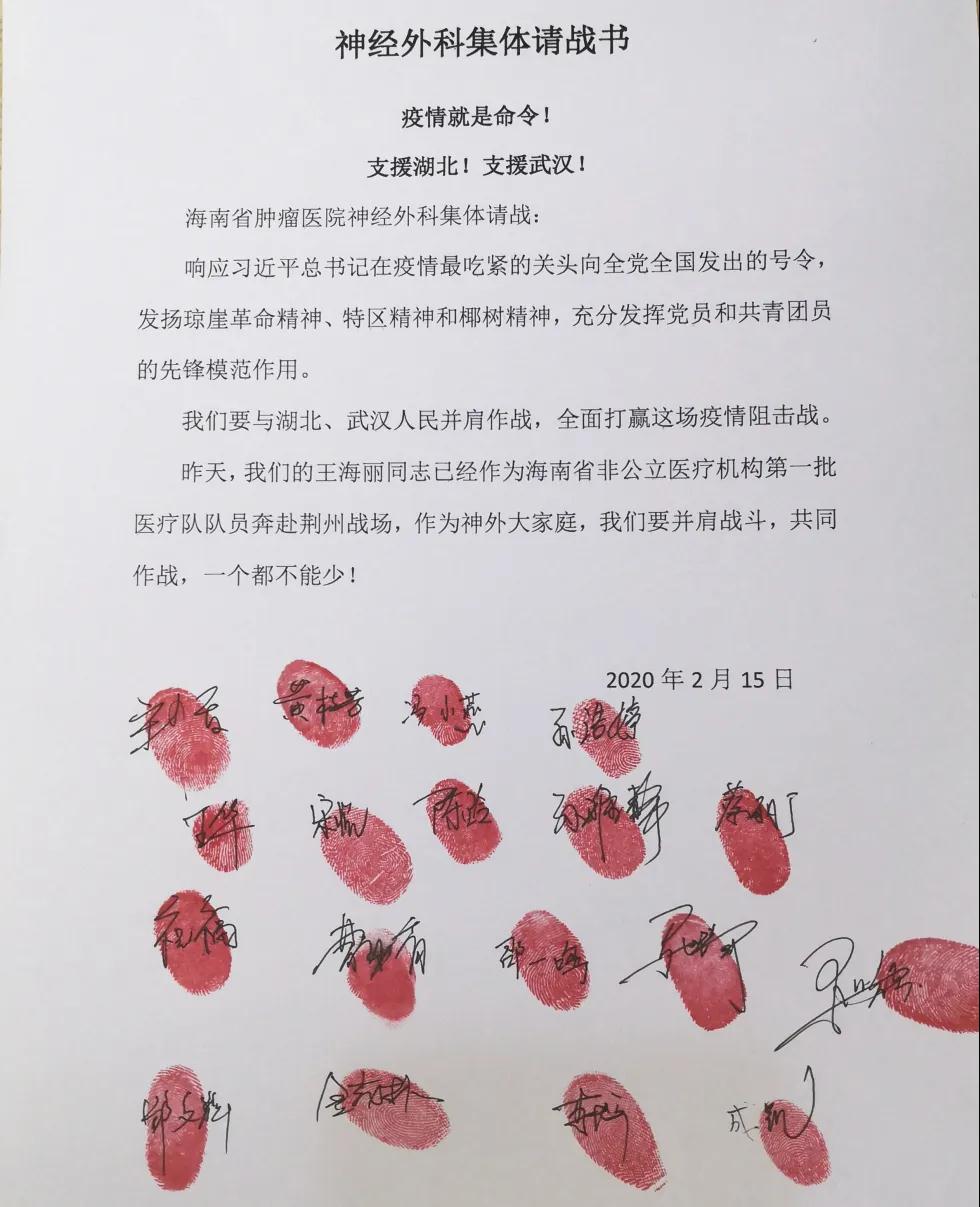 神经外科集体请战书
疫情就是命令！
支援湖北！支援武汉！
海南省肿瘤医院神经外科集体请战：
响应习近平总书记在疫情最吃紧的关头向全党全国发出的号令，
发扬琼崖革命精神、特区精神和椰树精神，充分发挥党员和共青团员
的先锋模范作用。
我们要与湖北、武汉人民并肩作战，全面打赢这场疫情阻击战。
昨天，我们的王海丽同志已经作为海南省非公立医疗机构第一批
医疗队队员奔赴荆州战场，作为神外大家庭，我们要并肩战斗，共同
作战，一个都不能少！
2020 年 2 月 15 日
黄桂芳 冯小燕 孙浩婷
王华
邵一鸣
成凯